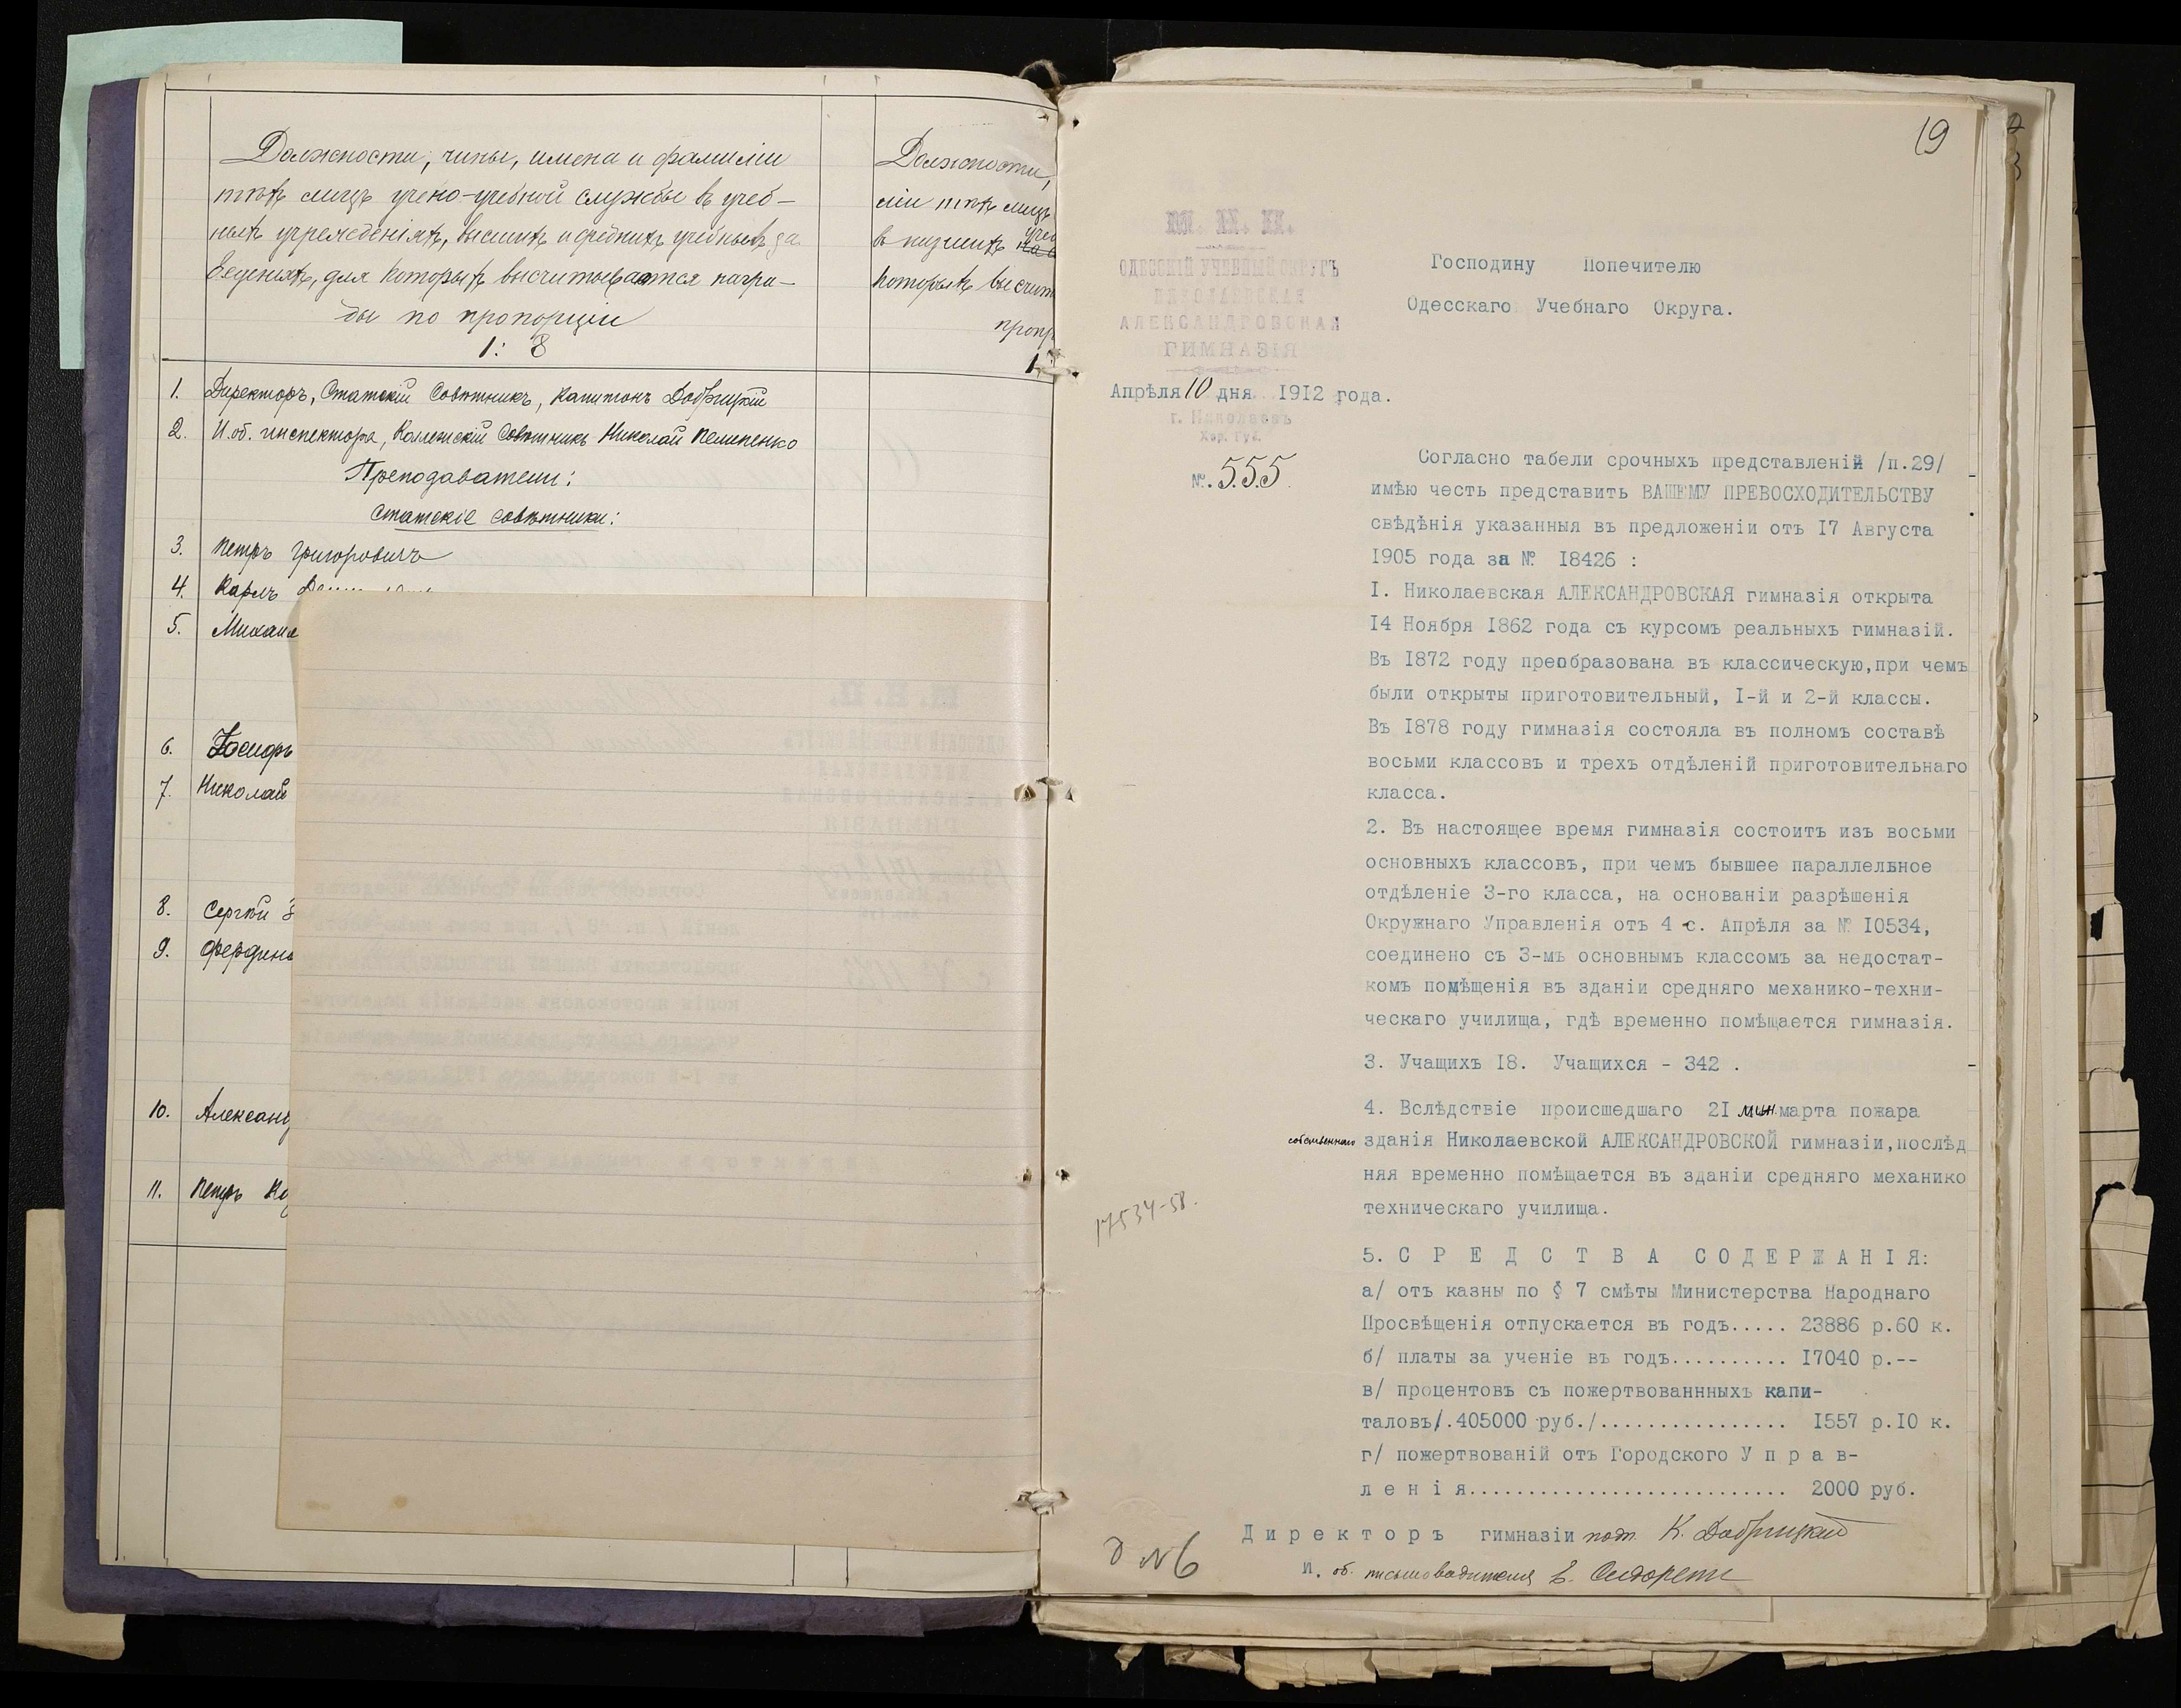 Должности, чины, имена и фамиліи
тѣхъ лицъ учено-учебной службы въ учеб-
ныхъ учрежденіяхъ, высшихъ и среднихъ учебныхъ за
веденіяхъ, для которыхъ высчитываются награ-
ды по пропорціи
1: 8
Должности,
ліи тѣхъ лицъ
въ низшихъ
которыхъ высчит
1:
1. Директоръ, Статскій Совѣтникъ, Капитонъ Добрицкій
2. И.об. инспектора, Коллежскій Совѣтникъ Николай Пелипенко
Преподаватели:
Статскіе совѣтники:
3. Петръ Григоровичъ
4. Карлъ
5. Михаил
6. Іосифъ
7. Николай
8. Сергѣй З
9. Фердина
10. Александ
11. Петръ
19
М. Н. П.
ОДЕССКІЙ УЧЕБНЫЙ ОКРУГЪ
НИКОЛАЕВСКАЯ
АЛЕКСАНДРОВСКАЯ
ГИМНАЗІЯ
Апрѣля 10 дня 1912 года.
г. Николаевъ
Хер. Губ.
№. 555.
Господину Попечителю
Одесскаго Учебнаго Округа.
Согласно табели срочныхъ представленій /п.29/
имѣю честь представить ВАШЕМУ ПРЕВОСХОДИТЕЛЬСТВУ
свѣдѣнія указанныя въ предложеніи отъ I7 Августа
I905 года за № I8426 :
I. Николаевская АЛЕКСАНДРОВСКАЯ гимназія открыта
I4 Ноября I862 года съ курсомъ реальныхъ гимназій.
Въ I872 году преобразована въ классическую,при чемъ
были открыты приготовительный, I-й и 2-й классы.
Въ I878 году гимназія состояла въ полномъ составѣ
восьми классовъ и трехъ отдѣленій приготовительнаго
класса.
2. Въ настоящее время гимназія состоитъ изъ восьми
основныхъ классовъ, при чемъ бывшее параллельное
отдѣленіе 3-го класса, на основаніи разрѣшенія
Окружнаго Управленія отъ 4 с. Апрѣля за № I0534,
соединено съ 3-мъ основнымъ классомъ за недостат-
комъ помѣщенія въ зданіи средняго механико-техни-
ческаго училища, гдѣ временно помѣщается гимназія.
3. Учащихъ I8. Учащихся - 342 .
4. Вслѣдствіе происшедшаго 2I мин. марта пожара
собственнаго зданія Николаевской АЛЕКСАНДРОВСКОЙ гимназіи,послѣд
няя временно помѣщается въ зданіи средняго механико
техническаго училища.
17534-58.
5. С Р Е Д С Т В А С О Д Е Р Ж А Н І Я:
а/ отъ казны по § 7 смѣты Министерства Народнаго
Просвѣщенія отпускается въ годъ..... 23886 р.60 к.
б/ платы за ученіе въ годъ.......... I7040 р.--
в/ процентовъ съ пожертвованнныхъ капи-
таловъ/.405000 руб./................ I557 р.I0 к.
г/ пожертвованій отъ Городского У п р а в-
л е н і я........................... 2000 руб.
Д и р е к т о р ъ гимназіи подп. К. Добрицкій
И. об. письмоводителя
№ 6